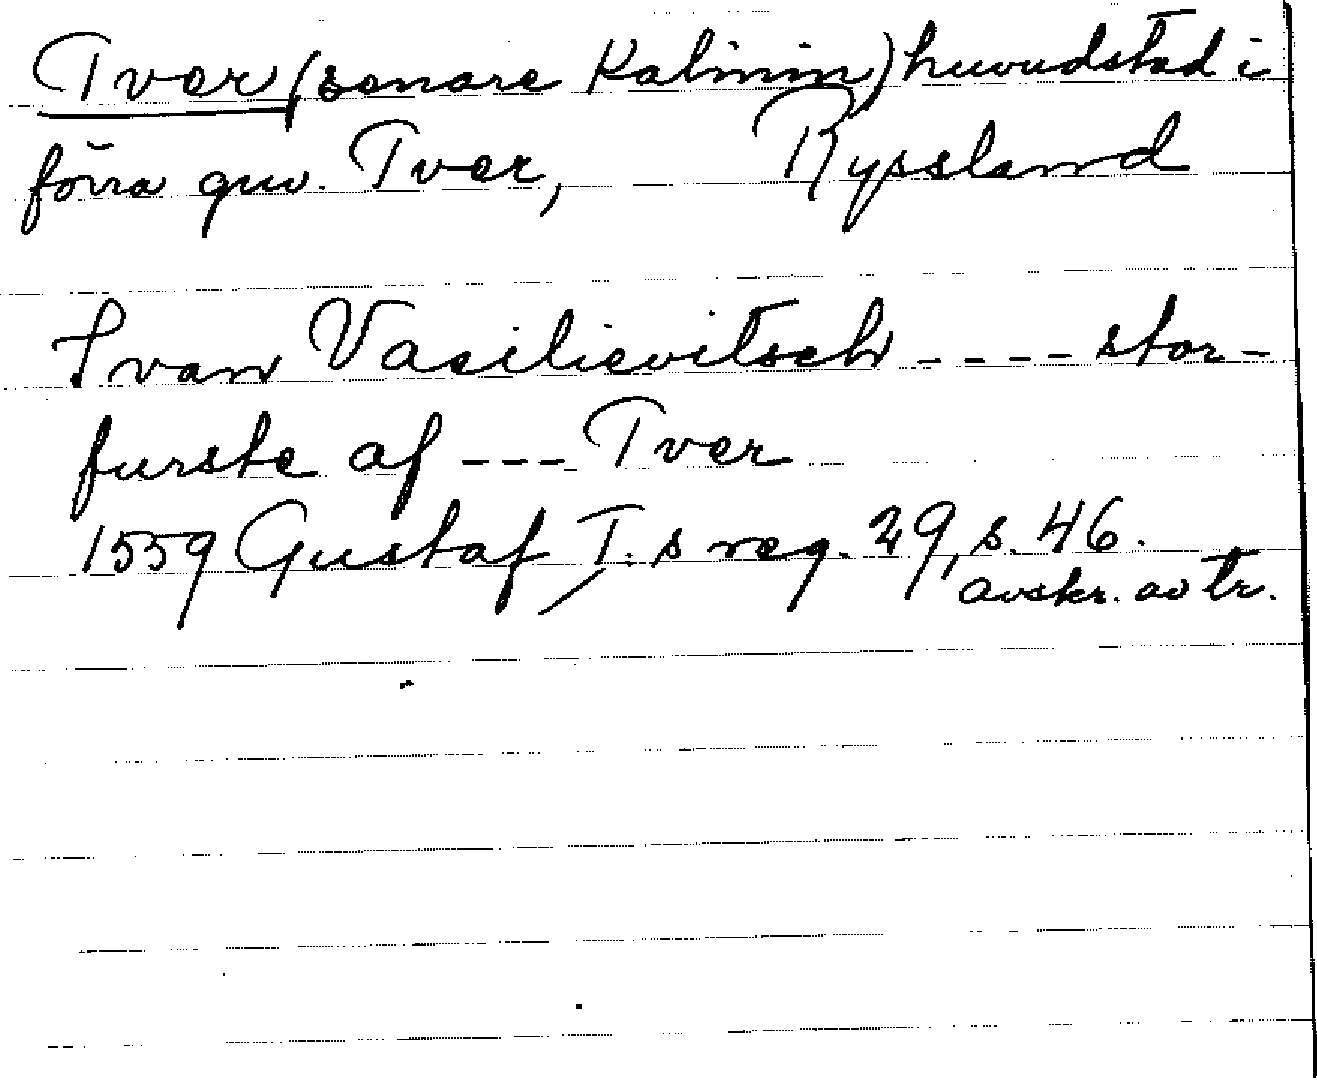 Tver (senare Kalinin) huvudstad i
förra guv. Tver, Ryssland
Ivan Vasilievitsch ---- stor-
furste af --- Tver
1559 Gustaf I.s reg. 29, s. 46.
avskr. av tr.